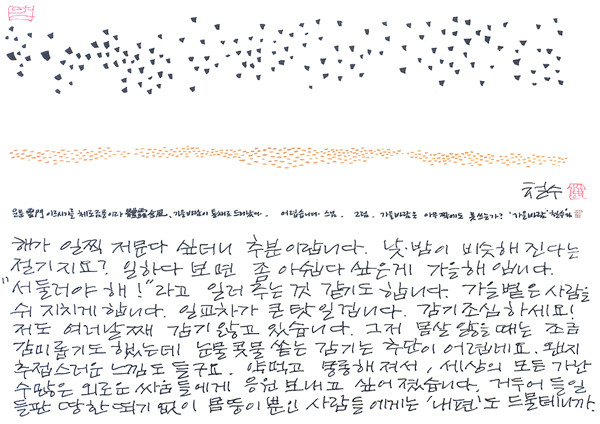 철수
운문 雲門 이르시기를 체로금풍이라 體露金風. 가을바람이 통째로 드러났다. 어렵습니다 스님. 그럼. 가을바람은 아무짝에도 못쓰는가? '가을바람' 철수
해가 일찍 저문다 싶더니 추분이랍니다. 낮·밤이 비슷해 진다는
절기지요? 일하다 보면 좀 아쉽다 싶은게 가을해 입니다.
"서둘러야 해!"라고 일러 주는 것 같기도 합니다. 가을볕은 사람을
쉬 지치게 합니다. 일교차가 큰 탓 일겁니다. 감기조심하세요!
저도 여러날째 감기 앓고 있습니다. 그저 몸살 앓을 때는 조금
감미롭기도 했는데 눈물콧물 쏟는 감기는 추단이 어렵네요. 괜히
추접스러운 느낌도 들구요. 약먹고 몽롱해져서, 세상의 모든 가난
수많은 외로운 싸움들에게 응원 보내고 싶어졌습니다. 거두어 들일
들판 땅한뙈기 없이 몸뚱이뿐인 사람들에게는 '내편'도 드물테니까.